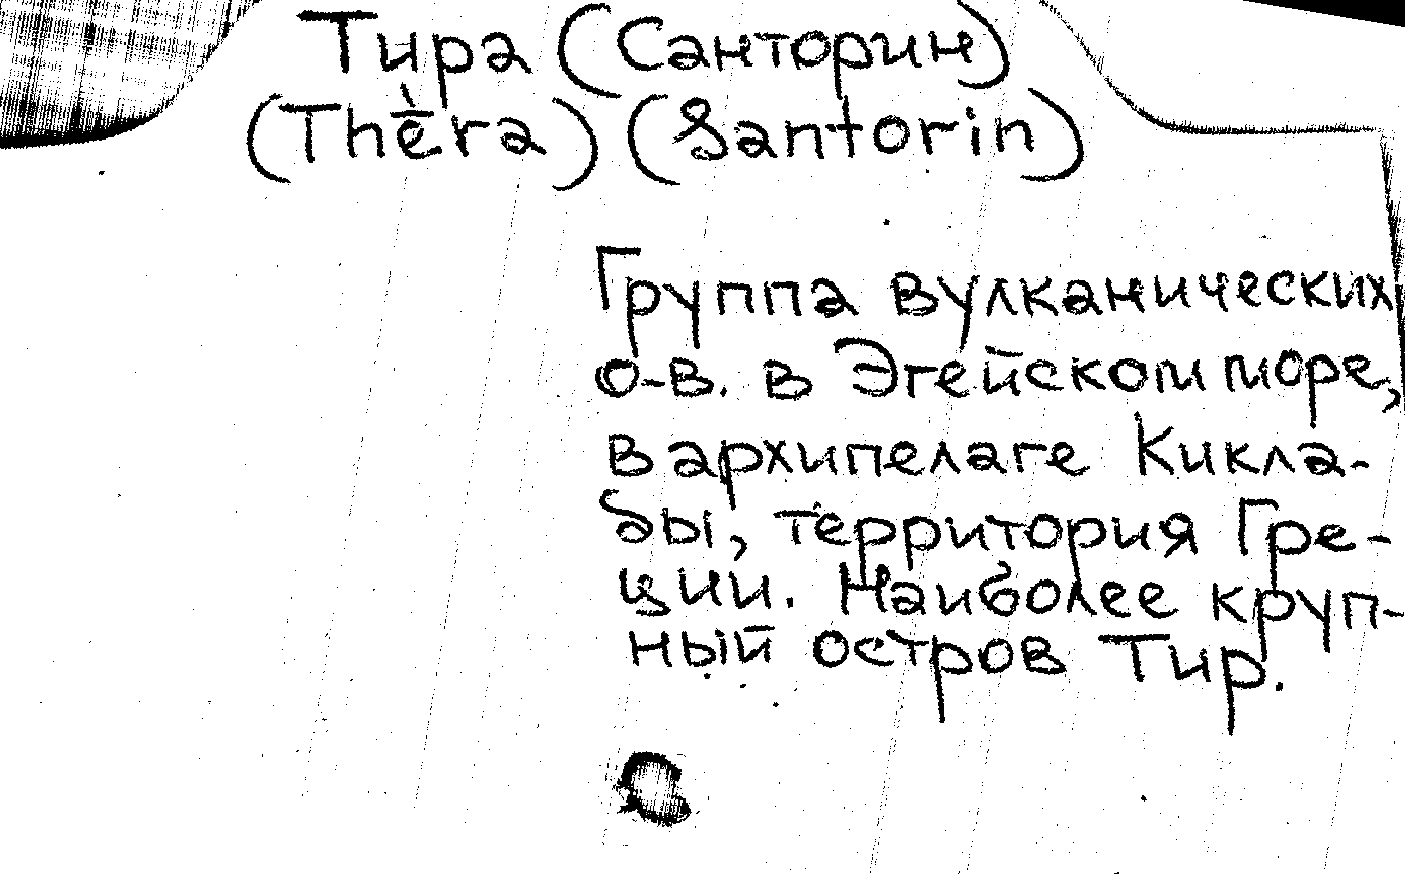 Тира (Санторин)
(Thèra) (Santorin)
Группа вулканических
о-в. в Эгейском море,
в архипелаге Кикла-
ды, территория Гре-
ции. Наиболее круп-
ный остров Тир.